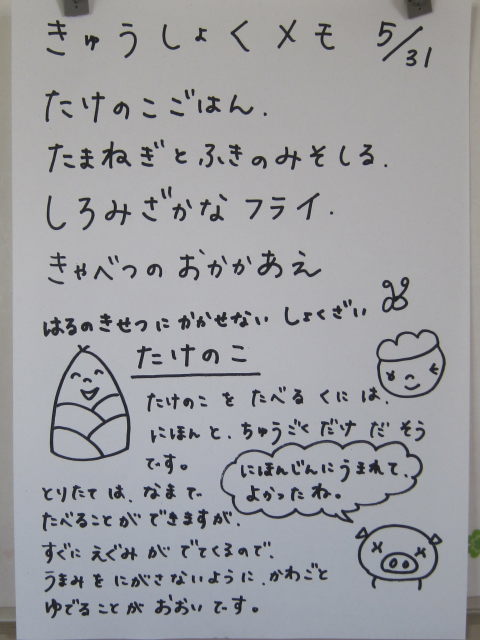 きゅうしょくメモ 5/31
たけのこごはん.
たまねぎとふきのみそしる.
しろみざかなフライ.
きゃべつのおかかあえ
はるのきせつにかかせないしょくざい
たけのこ
たけのこをたべるくには、
にほんと、ちゅうごくだけだそう
です。
にほんじんにうまれて、
よかったね。
とりたては、なまで
たべることができますが、
すぐにえぐみがでてくるので、
うまみをにがさないように、かわごと
ゆでることがおおいです。